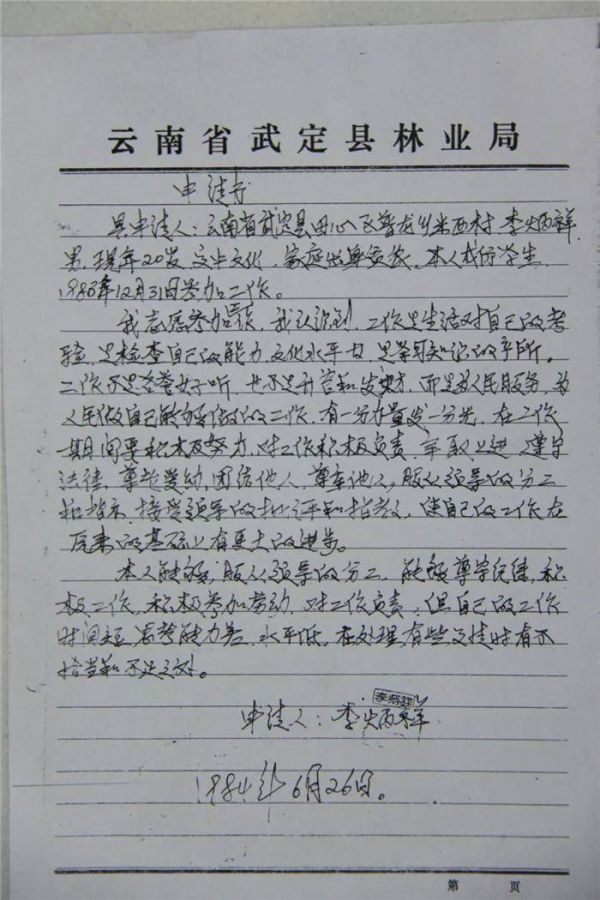 云南省武定县林业局
申请书
具申请人：云南省武定县田心区普龙乡米西村 李炳祥
男，现年20岁，文中文化，家庭出身贫农，本人成份学生
1983年12月31日参加工作。
我志愿参加工作，我认识到，工作是生活对自己的考
验，是检查自己的能力，文化水平，是学习知识的场所。
工作不是名誉好听，也不是升官和发财，而是为人民服务，为
人民做自己能够做的工作，有一分力量发一分光，在工作
期间要积极努力，对工作积极负责，争取上进，遵守
法律，尊老爱幼，团结他人，尊重他人，服从领导的分工
和指示，接受领导的批评和指教，使自己的工作在
原来的基础上有更大的进步。
本人能够服从领导的分工，能够遵守纪律，积
极工作，积极参加劳动，对工作负责，但自己的工作
时间短，思考能力差，水平低，在处理有些事情时有不
恰当和不足之处。
申请人：李炳祥
1984年6月26日。
第 页